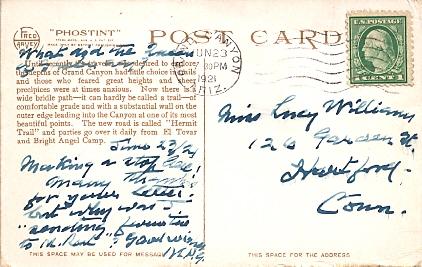 "PHOSTINT"
FRED
HARVEY
POST CARD
GRAND CANYON
JUN 23
30PM
1921
ARIZ.
U.S. POSTAGE
1 CENT 1
What did the
Until recently
depths of Grand Canyon had little choice in trails
and those who feared great heights and sheer
precipices were at times anxious. Now there is a
wide bridle path—it can hardly be called a trail—of
comfortable grade and with a substantial wall on the
outer edge leading into the Canyon at one of its most
beautiful points. The new road is called "Hermit
Trail" and parties go over it daily from El Tovar
and Bright Angel Camp.
June 23/21
Making a stop here.
Many thanks
for your letter.
but why was I
"sending
to
" Good wishes
Miss Lucy Williams
126 Garden St.
Hartford-
Conn.
THIS SPACE MAY BE USED FOR MESSAGE
THIS SPACE FOR THE ADDRESS